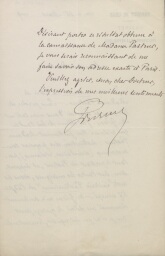 Désirant porter ce résultat obtenu à
la connaissance de Madame Pasteur,
je vous serais reconnaissant de me
faire savoir son adresse exacte à Paris.
Veuillez agréer, cher Docteur,
l'expression de mes meilleurs sentiments